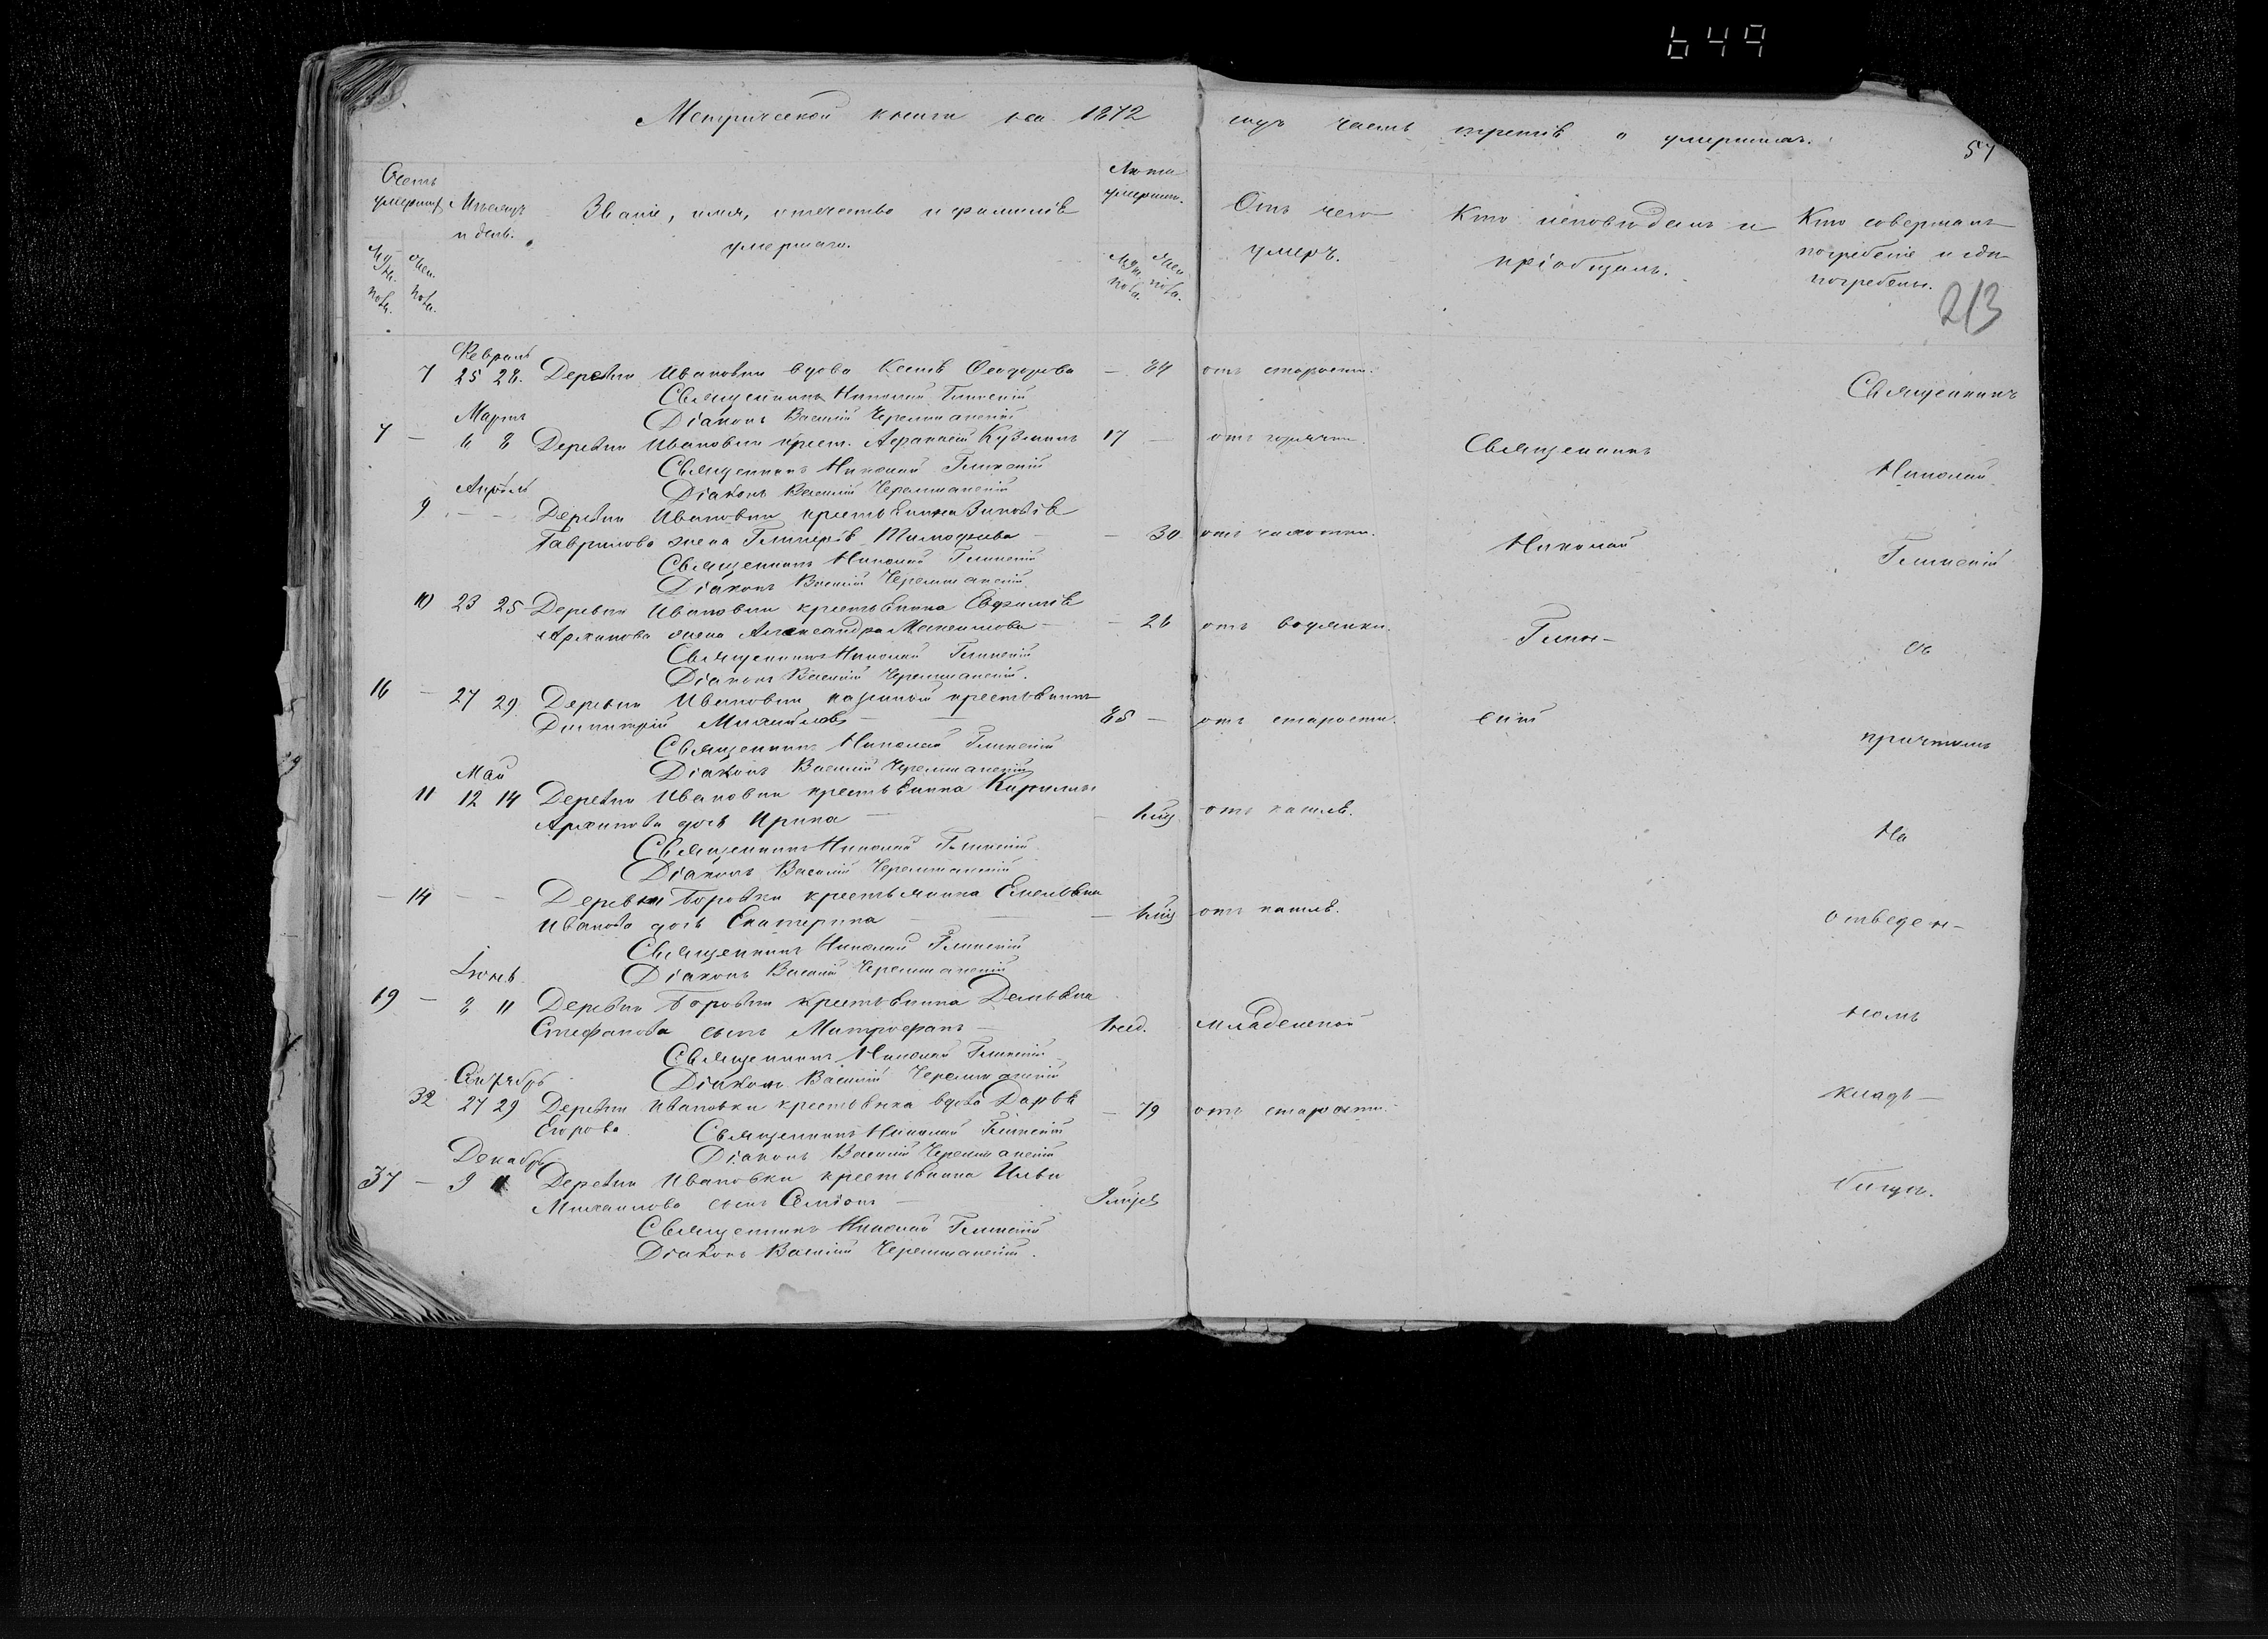 649
Метрической книги на 1872 годъ часть третія о умершихъ.
57
Счетъ умершихъ
Мѣсяцъ и день.
Званіе, имя, отчество и фамилія умершаго.
Лѣта умершаго.
Отъ чего умеръ.
Кто исповѣдалъ и пріобщалъ.
Кто совершалъ погребеніе и гдѣ погребены.
Муж. пола.
Жен. пола.
Муж. пола.
Жен. пола.
213
Февраль
7 25 28. Деревни Ивановки вдова Ксенія Ѳеодорова — 84 отъ старости.
Священникъ Николай Глинскій
Діаконъ Василій Черемшанскій
Мартъ
7 — 6 8 Деревни Ивановки крест. Афанасій Кузминъ 17 — отъ горячки.
Священникъ Николай Глинскій
Діаконъ Василій Черемшанскій
Апрѣль
9 — — Деревни Ивановки крестьянина Зиновія
Гаврилова жена Гликерія Тимофеева — — 30 отъ чахотки.
Священникъ Николай Глинскій
Діаконъ Василій Черемшанскій
10 23 25 Деревни Ивановки крестьянина Евфимія
Архипова жена Александра Максимова — — 26 отъ водянки.
Священникъ Николай Глинскій
Діаконъ Василій Черемшанскій.
16 — 27 29 Деревни Ивановки казенной крестьянинъ
Димитрій Михайловъ — 85 — отъ старости.
Священникъ Николай Глинскій
Діаконъ Василій Черемшанскій
Май
11 12 14 Деревни Ивановки крестьянина Кирилы
Архипова дочь Ирина — отъ кашля.
Священникъ Николай Глинскій
Діаконъ Василій Черемшанскій
— 14 — — Деревни Боровки крестьянина Емельяна
Иванова дочь Екатерина — отъ кашля.
Священникъ Николай Глинскій
Діаконъ Василій Черемшанскій
Іюнь
19 — 8 11 Деревни Боровки крестьянина Демьяна
Стефанова сынъ Митрофанъ — 1 нед. младенской
Священникъ Николай Глинскій
Діаконъ Василій Черемшанскій
Сентябрь
32 27 29 Деревни Ивановки крестьянка вдова Дарья — 79 отъ старости.
Егорова Священникъ Николай Глинскій
Діаконъ Василій Черемшанскій
Декабрь
37 — 9 11 Деревни Ивановки крестьянина Ильи
Михаилова сынъ —
Священникъ Николай Глинскій
Діаконъ Василій Черемшанскій.
Священникъ
Николай
Глин-
скій
Священникъ
Николай
Глинскій
съ
причтомъ
На
отведен-
номъ
кладъ-
бищѣ.